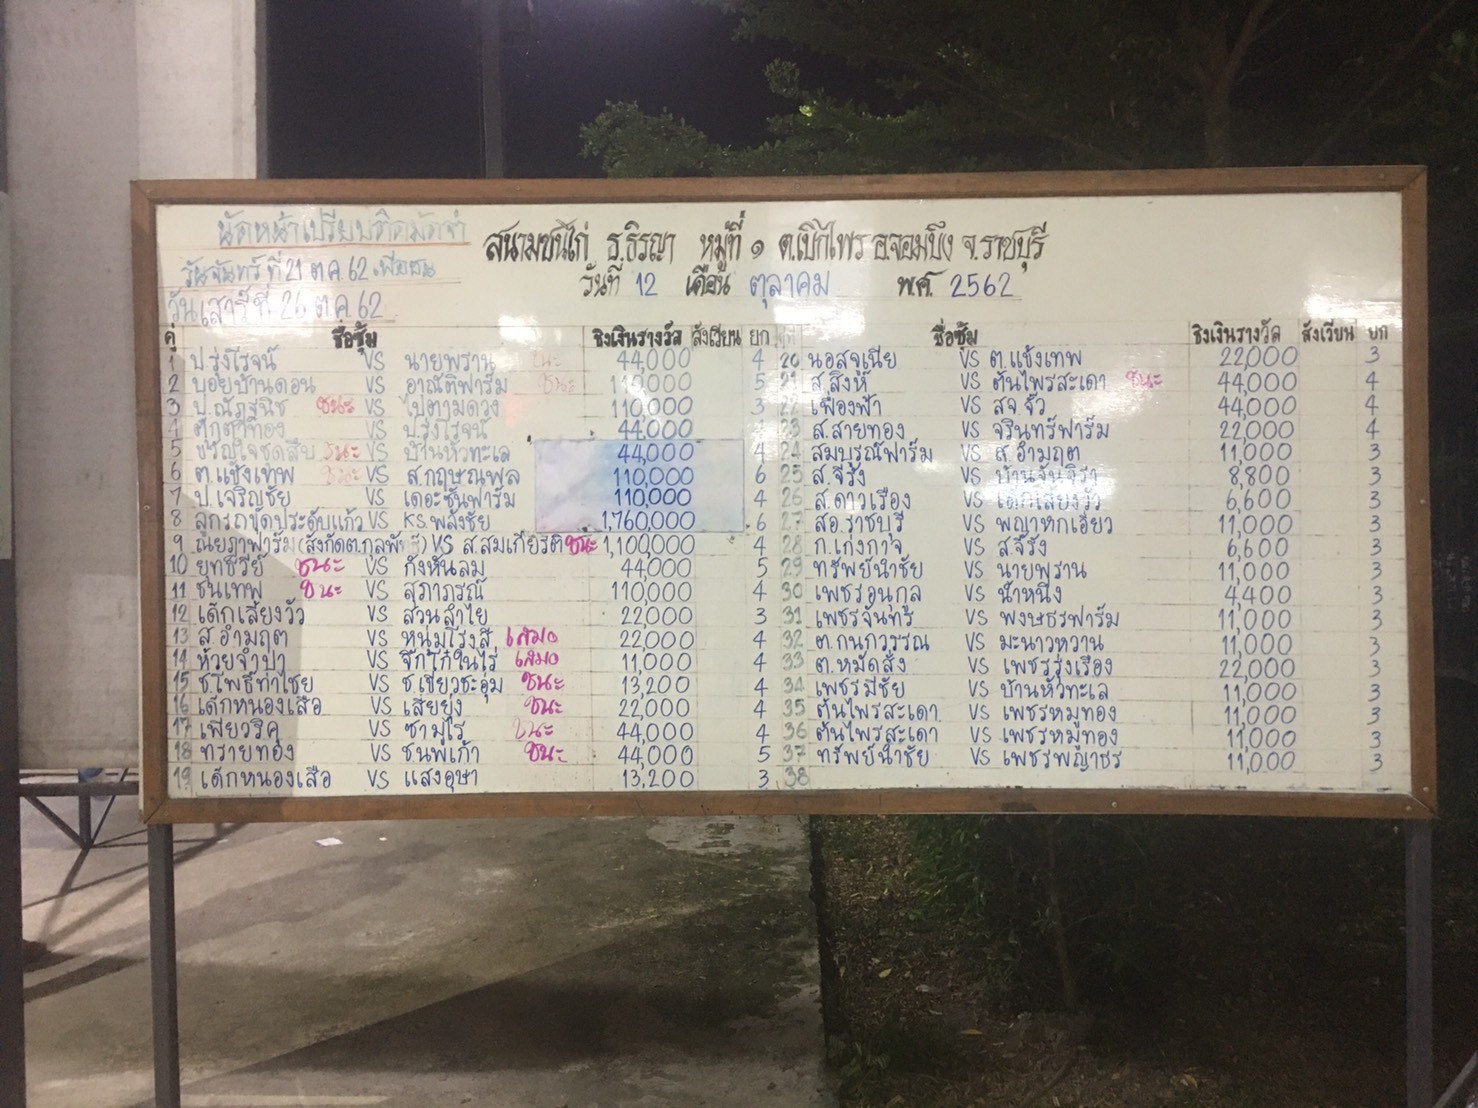 นัดหน้าเปรียบติดมัดจำ
วันจันทร์ที่ 21 ต.ค 62
วันเสาร์ที่ 26 ต.ค 62
สนามชนไก่ ธ.ธิรญา หมู่ที่ ๑ ต.เบิกไพร อ.จอมบึง จ.ราชบุรี
วันที่ 12 เดือน ตุลาคม พ.ศ. 2562
คู่ ชื่อซุ้ม ชิงเงินรางวัล สังเวียน ยก
1 ป.รุ่งโรจน์ VS นายพราน ชนะ 44,000 4
2 บอยบ้านดอน VS อาณัติฟาร์ม ชนะ 110,000 5
3 ป.ณัฏฐนิช ชนะ VS ไปตามดวง 110,000 3
4 VS ป.รุ่งโรจน์ 44,000 4
5 ขวัญใจชุดสืบ ชนะ VS บ้านหัวทะเล 44,000 4
6 ต.แข้งเทพ ชนะ VS ส.กฤษณพล 110,000 6
7 ป.เจริญชัย VS เดอะซันฟาร์ม 110,000 4
8 ลูกรถขุดประดับแก้ว VS KS.พลังชัย 1,760,000 6
9 ณยฎาฟาร์ม (สังกัดต.กุลพันธ์) VS ส.สมเกียรติ ชนะ 1,100,000 4
10 ยุทธวีย์ ชนะ VS กังหันลม 44,000 5
11 ชนเทพ ชนะ VS สุภาภรณ์ 110,000 4
12 เด็กเลี้ยงวัว VS สวนลำไย 22,000 3
13 ส.อำมฤต VS หนุ่มโรงสี เสมอ 22,000 4
14 ห้วยจำปา VS จุ๊กโก๋ในไร่ เสมอ 11,000 4
15 ช.โพธิ์ท่าไชย VS ช.เขียวชะอุ่ม ชนะ 13,200 4
16 เด็กหนองเสือ VS เสี่ยยุ่ง ชนะ 22,000 4
17 เพียวริค VS ซามูไร ชนะ 44,000 4
18 ทรายทอง VS ชนพเก้า ชนะ 44,000 5
19 เด็กหนองเสือ VS แสงอุษา 13,200 3
คู่ที่ ชื่อซุ้ม ชิงเงินรางวัล สังเวียน ยก
20 นอสจูเนีย VS ต.แข้งเทพ 22,000 3
21 ส.สิงห์ VS ต้นไพรสะเดา ชนะ 44,000 4
22 เฟื่องฟ้า VS สจ.จั๊ว 44,000 4
23 ส.สายทอง VS จรินทร์ฟาร์ม 22,000 4
24 สมบูรณ์ฟาร์ม VS ส.อำมฤต 11,000 3
25 ส.จีรัง VS บ้านจันจิรา 8,800 3
26 ส.ดาวเรือง VS เด็กเลี้ยงวัว 6,600 3
27 สอ.ราชบุรี VS พญาหกเอี้ยว 11,000 3
28 ก.เก่งกาจ VS ส.จีรัง 6,600 3
29 ทรัพย์นำชัย VS นายพราน 11,000 3
30 เพชรอนุกูล VS น้ำหนึ่ง 4,400 3
31 เพชรจันทร์ VS พงษธรฟาร์ม 11,000 3
32 ต.กนกวรรณ VS มะนาวหวาน 11,000 3
33 ต.หมัดสั่ง VS เพชรรุ่งเรือง 22,000 3
34 เพชรมีชัย VS บ้านหัวทะเล 11,000 3
35 ต้นไพรสะเดา VS เพชรหมูทอง 11,000 3
36 ต้นไพรสะเดา VS เพชรหมูทอง 11,000 3
37 ทรัพย์นำชัย VS เพชรพญาธร 11,000 3
38